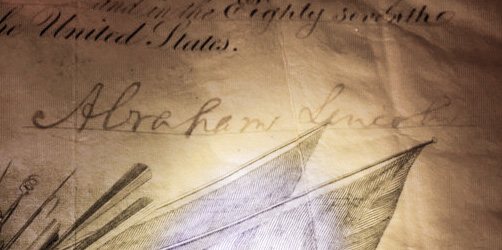 and in the Eighty seventh
the United States.
Abraham Lincoln